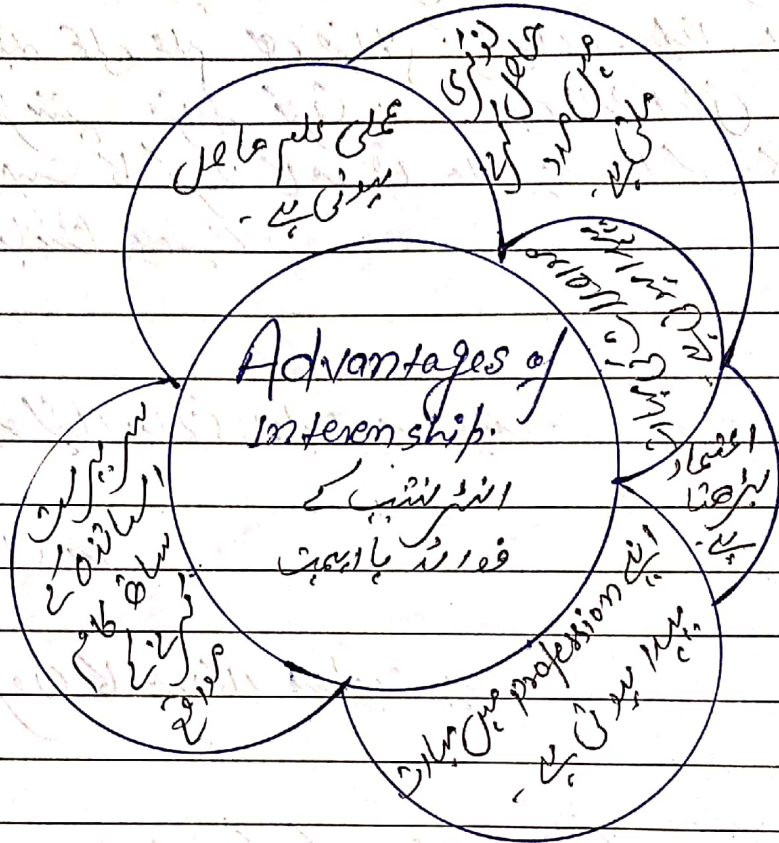 Advantages of
Internship.
انٹرنشپ کے
فوائد یا اہمیت
عملی علم حاصل
ہوتی ہے۔
نوکری
حاصل کرنے
میں مدد
ملتی ہے۔
اعتماد
بڑھتا
ہے۔
اپنے profession میں مہارت
پیدا ہوتی ہے۔
اساتذہ کے
ساتھ کام
کرنے کا
موقع